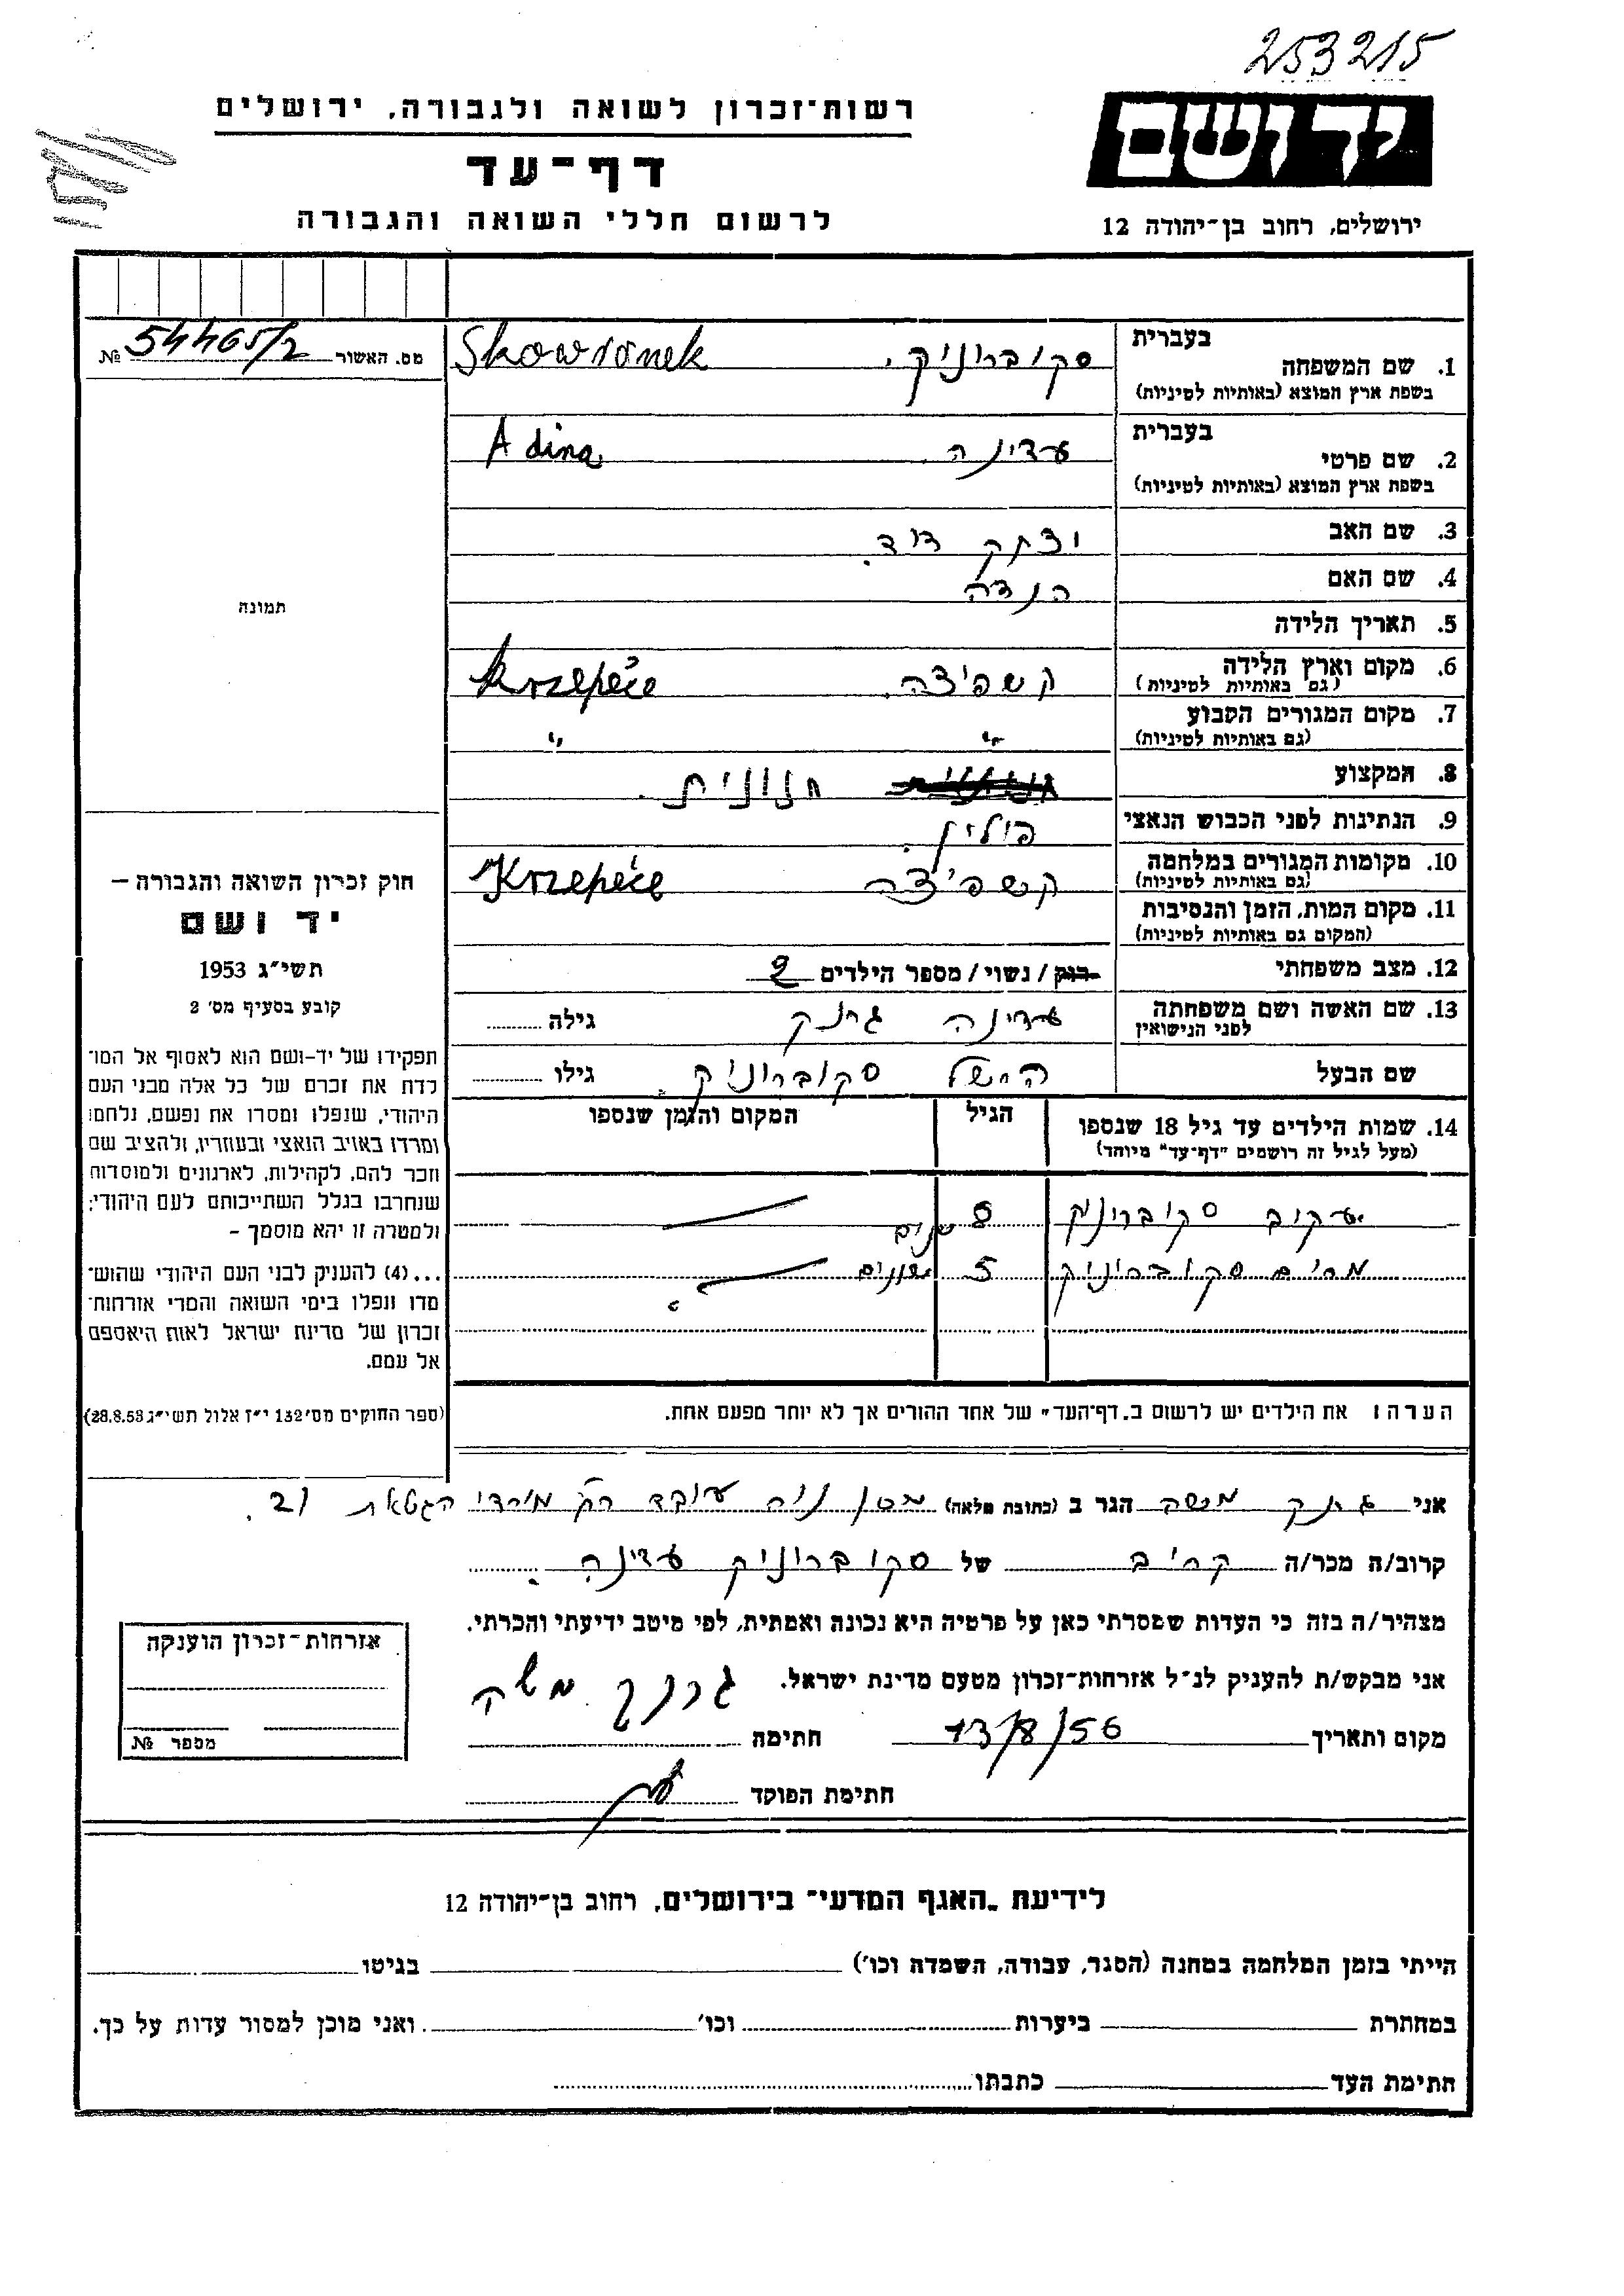 253215
רשות-זכרון לשואה ולגבורה, ירושלים
יד ושם
דף-עד
לרשום חללי השואה והגבורה
ירושלים, רחוב בן-יהודה 12
מס. האשור № 54465/2
בעברית
1. שם המשפחה סקוברוניק. Skowronek
בשפת ארץ המוצא (באותיות לטיניות)
בעברית
2. שם פרטי עדינה Adina
בשפת ארץ המוצא (באותיות לטיניות)
3. שם האב יצחק דוד.
4. שם האם הנדה
תמונה
5. תאריך הלידה
6. מקום וארץ הלידה קשפיצה Krzepice
(גם באותיות לטיניות)
7. מקום המגורים הקבוע " "
(גם באותיות לטיניות)
8. המקצוע חנונית.
9. הנתינות לפני הכבוש הנאצי פולין.
10. מקומות המגורים במלחמה קשפיצה Krzepice
(גם באותיות לטיניות)
11. מקום המות, הזמן והנסיבות
(המקום גם באותיות לטיניות)
12. מצב משפחתי רווק / נשוי / מספר הילדים 2
13. שם האשה ושם משפחתה עדינה גרנק גילה
לפני הנישואין
שם הבעל הרשל סקוברוניק. גילו
14. שמות הילדים עד גיל 18 שנספו הגיל המקום והזמן שנספו
(מעל לגיל זה רושמים "דף-עד" מיוחד)
יעקוב סקוברוניק 8 שנים
מרים סקוברוניק 5 שנים
הערה: את הילדים יש לרשום ב"דף-העד" של אחד ההורים אך לא יותר מפעם אחת.
חוק זכרון השואה והגבורה –
יד ושם
תשי"ג 1953
קובע בסעיף מס' 2
תפקידו של יד-ושם הוא לאסוף אל המו-
לדת את זכרם של כל אלה מבני העם
היהודי, שנפלו ומסרו את נפשם, נלחמו
ומרדו באויב הנאצי ובעוזריו, ולהציב שם
וזכר להם, לקהילות, לארגונים ולמוסדות
שנחרבו בגלל השתייכותם לעם היהודי;
ולמטרה זו יהא מוסמך –
...(4) להעניק לבני העם היהודי שהוש-
מדו ונפלו בימי השואה והמרי אזרחות-
זכרון של מדינת ישראל לאות היאספם
אל עמם.
(ספר החוקים מס' 132 י"ז אלול תשי"ג 28.8.53)
אני גרנק משה הגר ב (כתובת מלאה) עובד רח מורדי הגטאות 21.
קרוב/ה מכר/ה קריב של סקוברוניק עדינה.
מצהיר/ה בזה כי העדות שמסרתי כאן על פרטיה היא נכונה ואמתית, לפי מיטב ידיעתי והכרתי.
אני מבקש/ת להעניק לנ"ל אזרחות-זכרון מטעם מדינת ישראל.
מקום ותאריך 13/8/56 חתימה גרנק משה
חתימת הפוקד
אזרחות-זכרון הוענקה
מספר №
לידיעת "האגף המדעי" בירושלים, רחוב בן-יהודה 12
הייתי בזמן המלחמה במחנה (הסגר, עבודה, השמדה וכו') בגיטו
במחתרת ביערות וכו' ואני מוכן למסור עדות על כך.
חתימת העד כתבתו